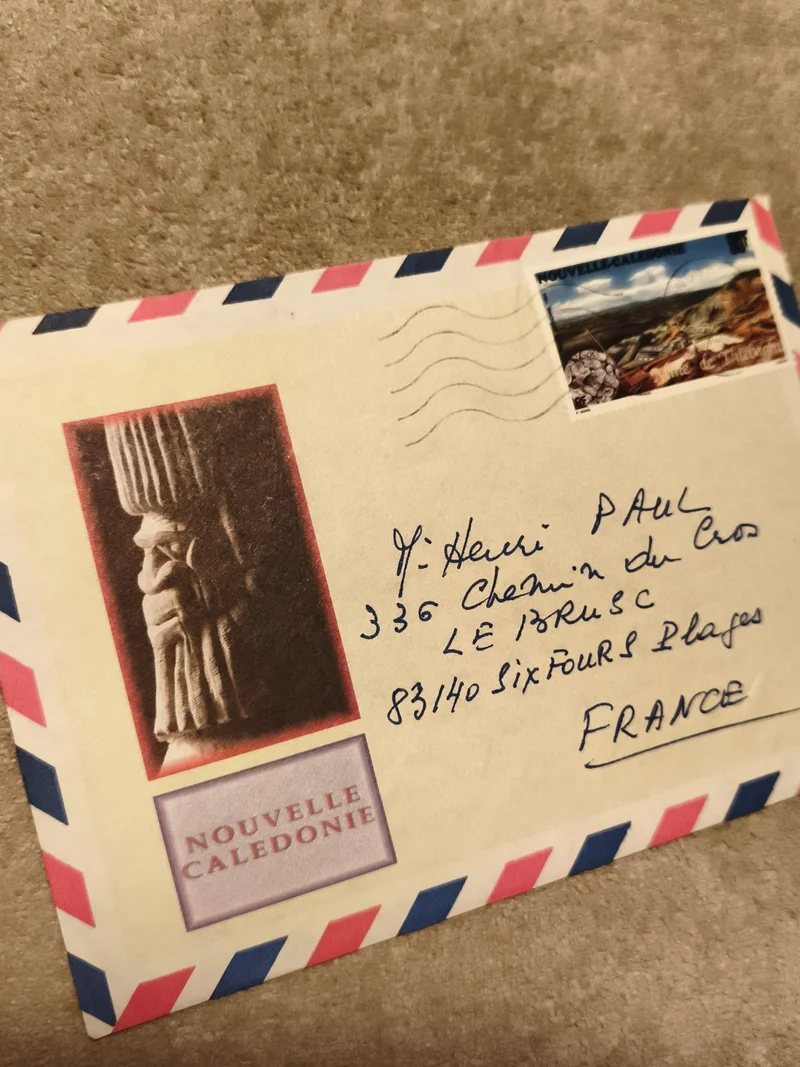 NOUVELLE-CALEDONIE
RF
Mr Henri PAUL
336 Chemin du Cros
LE BRUSC
83140 SixFOURS Plages
FRANCE
NOUVELLE
CALEDONIE